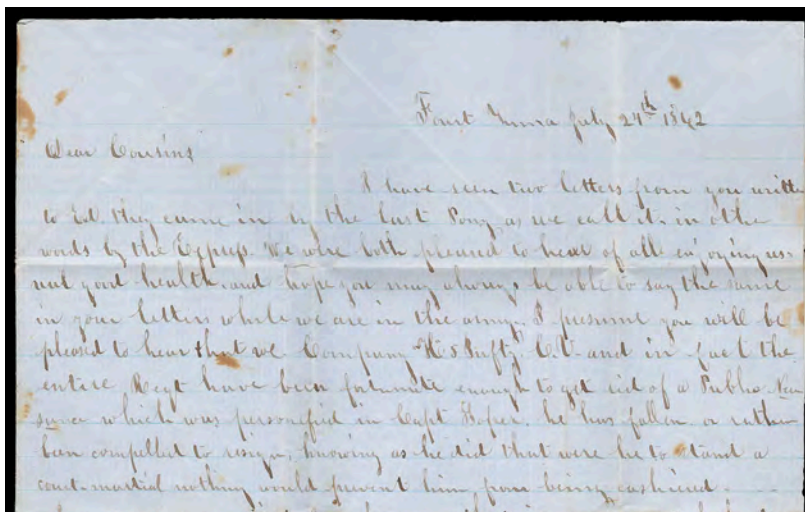 Fourt Yuma July 24th 1862
Dear Cousins
I have seen two letters from you written
to Ed. they came in by the last Pony, as we call it, in other
words by the Express. We were both pleased to hear of all enjoying us-
ual good health. and hope you may always be able to say the same
in your letters while we are in the army. I presume you will be
pleased to hear that we Company "H" 5 Infty C.V. and in fact the
entire Regt have been fortunate enough to get rid of a Public Neu
sance which was personified in Capt he has fallen or rather
been compelled to resign, knowing as he did that were he to stand a
court-martial nothing would prevent him from being cashiered.